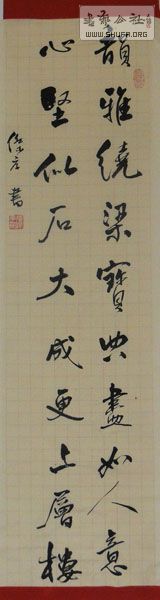 書法公社
WWW.SHUFA.ORG
韻雅繞梁寶典盡如人意
心堅似石大成更上層樓
書